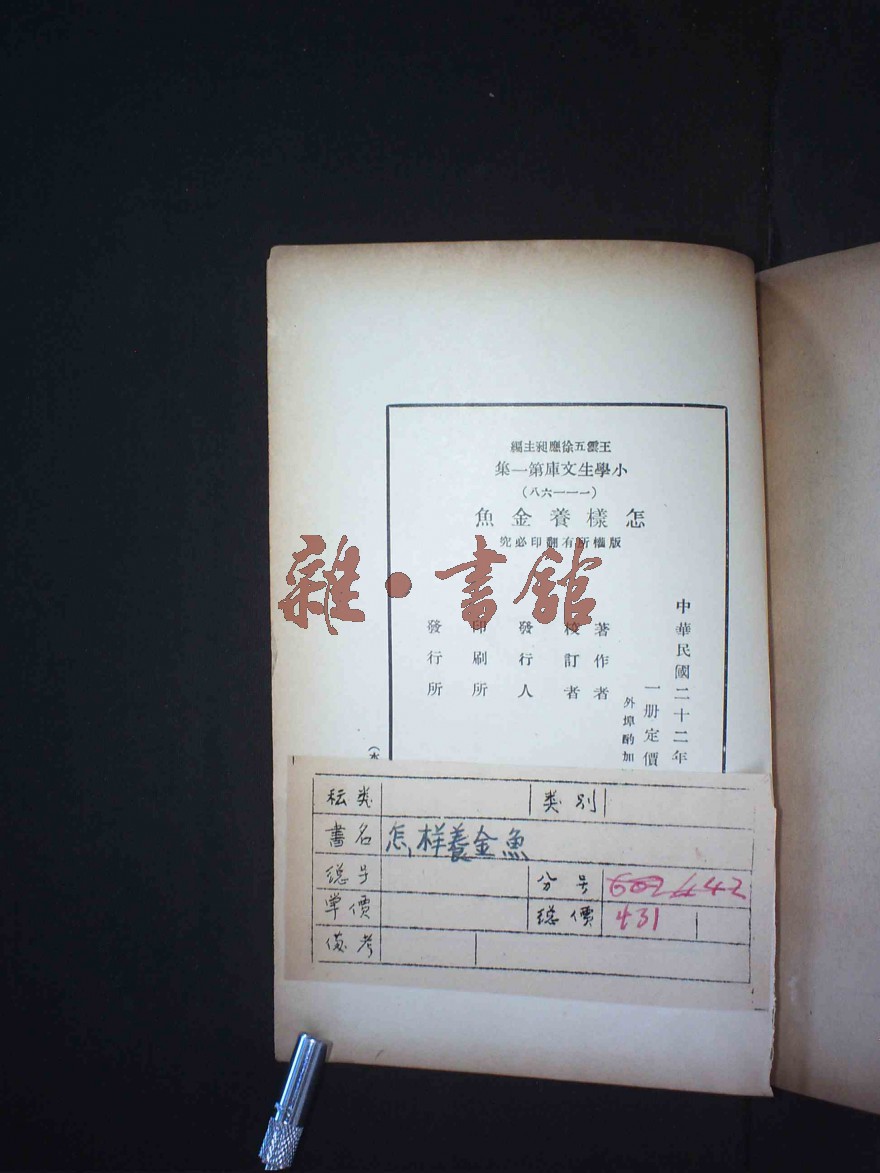 王雲五徐應昶主編
小學生文庫第一集
(一一一六八)
怎樣養金魚
版權所有翻印必究
中華民國二十二年
一册定價
外埠酌加
著作者
校訂者
發行人
印刷所
發行所
雜·書館
类别
書名 怎样養金魚
總号
分号 602442
单價
總價 431
备考